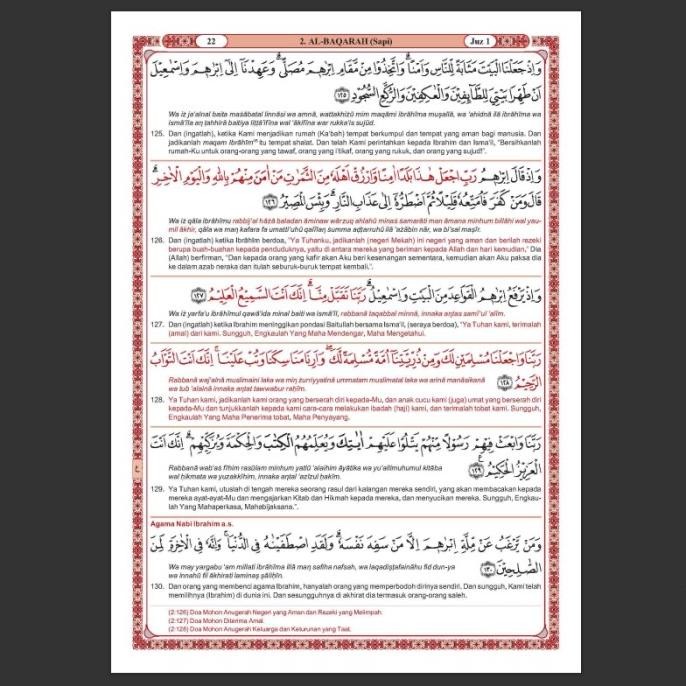 22 2. AL-BAQARAH (Sapi) Juz 1
وَاِذْ جَعَلْنَا الْبَيْتَ مَثَابَةً لِّلنَّاسِ وَاَمْنًاۗ وَاتَّخِذُوْا مِنْ مَّقَامِ اِبْرٰهٖمَ مُصَلًّىۗ وَعَهِدْنَآ اِلٰٓى اِبْرٰهٖمَ وَاِسْمٰعِيْلَ
اَنْ طَهِّرَا بَيْتِيَ لِلطَّاۤىِٕفِيْنَ وَالْعٰكِفِيْنَ وَالرُّكَّعِ السُّجُوْدِ ١٢٥
Wa iż ja'alnal baita maṡābatal linnāsi wa amnā, wattakhiżū mim maqāmi ibrāhīma muṣallā, wa 'ahidnā ilā ibrāhīma wa
ismā'īla an ṭahhirā baitiya liṭṭā'ifīna wal 'ākifīna war rukka'is sujūd.
125. Dan (ingatlah), ketika Kami menjadikan rumah (Ka'bah) tempat berkumpul dan tempat yang aman bagi manusia. Dan
jadikanlah maqam Ibrāhīm itu tempat shalat. Dan telah Kami perintahkan kepada Ibrahim dan Isma'il, "Bersihkanlah
rumah-Ku untuk orang-orang yang tawaf, orang yang i'tikaf, orang yang rukuk, dan orang yang sujud!".
وَاِذْ قَالَ اِبْرٰهٖمُ رَبِّ اجْعَلْ هٰذَا بَلَدًا اٰمِنًا وَّارْزُقْ اَهْلَهٗ مِنَ الثَّمَرٰتِ مَنْ اٰمَنَ مِنْهُمْ بِاللّٰهِ وَالْيَوْمِ الْاٰخِرِۗ
قَالَ وَمَنْ كَفَرَ فَاُمَتِّعُهٗ قَلِيْلًا ثُمَّ اَضْطَرُّهٗٓ اِلٰى عَذَابِ النَّارِۗ وَبِئْسَ الْمَصِيْرُ ١٢٦
Wa iż qāla ibrāhīmu rabbij'al hāżā baladan āminaw wārzuq ahlahū minaṡ ṡamarāti man āmana minhum billāhi wal yau-
mil ākhir, qāla wa man kafara fa umatti'uhū qalīlan ṡumma aḍṭarruhū ilā 'ażābin nār, wa bi'sal maṣīr.
126. Dan (ingatlah) ketika Ibrahim berdoa, "Ya Tuhanku, jadikanlah (negeri Mekah) ini negeri yang aman dan berilah rezeki
berupa buah-buahan kepada penduduknya, yaitu di antara mereka yang beriman kepada Allah dan hari kemudian," Dia
(Allah) berfirman, "Dan kepada orang yang kafir akan Aku beri kesenangan sementara, kemudian akan Aku paksa dia
ke dalam azab neraka dan itulah seburuk-buruk tempat kembali.".
وَاِذْ يَرْفَعُ اِبْرٰهٖمُ الْقَوَاعِدَ مِنَ الْبَيْتِ وَاِسْمٰعِيْلُۗ رَبَّنَا تَقَبَّلْ مِنَّاۗ اِنَّكَ اَنْتَ السَّمِيْعُ الْعَلِيْمُ ١٢٧
Wa iż yarfa'u ibrāhīmul qawā'ida minal baiti wa ismā'īl, rabbanā taqabbal minnā, innaka antas samī'ul 'alīm.
127. Dan (ingatlah) ketika Ibrahim meninggikan pondasi Baitullah bersama Isma'il, (seraya berdoa), "Ya Tuhan kami, terimalah
(amal) dari kami. Sungguh, Engkaulah Yang Maha Mendengar, Maha Mengetahui.
رَبَّنَا وَاجْعَلْنَا مُسْلِمَيْنِ لَكَ وَمِنْ ذُرِّيَّتِنَآ اُمَّةً مُّسْلِمَةً لَّكَۖ وَاَرِنَا مَنَاسِكَنَا وَتُبْ عَلَيْنَاۚ اِنَّكَ اَنْتَ التَّوَّابُ
الرَّحِيْمُ ١٢٨
Rabbanā waj'alnā muslimaini laka wa min żurriyyatinā ummatam muslimatal laka wa arinā manāsikanā
wa tub 'alainā innaka antat tawwabur raḥīm.
128. Ya Tuhan kami, jadikanlah kami orang yang berserah diri kepada-Mu, dan anak cucu kami (juga) umat yang berserah diri
kepada-Mu dan tunjukkanlah kepada kami cara-cara melakukan ibadah (haji) kami, dan terimalah tobat kami. Sungguh,
Engkaulah Yang Maha Penerima tobat, Maha Penyayang.
رَبَّنَا وَابْعَثْ فِيْهِمْ رَسُوْلًا مِّنْهُمْ يَتْلُوْا عَلَيْهِمْ اٰيٰتِكَ وَيُعَلِّمُهُمُ الْكِتٰبَ وَالْحِكْمَةَ وَيُزَكِّيْهِمْۗ اِنَّكَ اَنْتَ
الْعَزِيْزُ الْحَكِيْمُ ١٢٩
Rabbanā wab'aṡ fīhim rasūlam minhum yatlū 'alaihim āyātika wa yu'allimuhumul kitāba
wal ḥikmata wa yuzakkīhim, innaka antal 'azīzul ḥakīm.
129. Ya Tuhan kami, utuslah di tengah mereka seorang rasul dari kalangan mereka sendiri, yang akan membacakan kepada
mereka ayat-ayat-Mu dan mengajarkan Kitab dan Hikmah kepada mereka, dan menyucikan mereka. Sungguh, Engkau-
lah Yang Mahaperkasa, Mahabijaksana.".
Agama Nabi Ibrahim a.s.
وَمَنْ يَّرْغَبُ عَنْ مِّلَّةِ اِبْرٰهٖمَ اِلَّا مَنْ سَفِهَ نَفْسَهٗۗ وَلَقَدِ اصْطَفَيْنٰهُ فِى الدُّنْيَاۚ وَاِنَّهٗ فِى الْاٰخِرَةِ لَمِنَ
الصّٰلِحِيْنَ ١٣٠
Wa may yargabu 'am millati ibrāhīma illā man safiha nafsah, wa laqadiṣṭafaināhu fid dun-ya
wa innahū fil ākhirati laminaṣ ṣāliḥīn.
130. Dan orang yang membenci agama Ibrahim, hanyalah orang yang memperbodoh dirinya sendiri. Dan sungguh, Kami telah
memilihnya (Ibrahim) di dunia ini. Dan sesungguhnya di akhirat dia termasuk orang-orang saleh.
(2:126) Doa Mohon Anugerah Negeri yang Aman dan Rezeki yang Melimpah.
(2:127) Doa Mohon Diterima Amal.
(2:128) Doa Mohon Anugerah Keluarga dan Keturunan yang Taat.